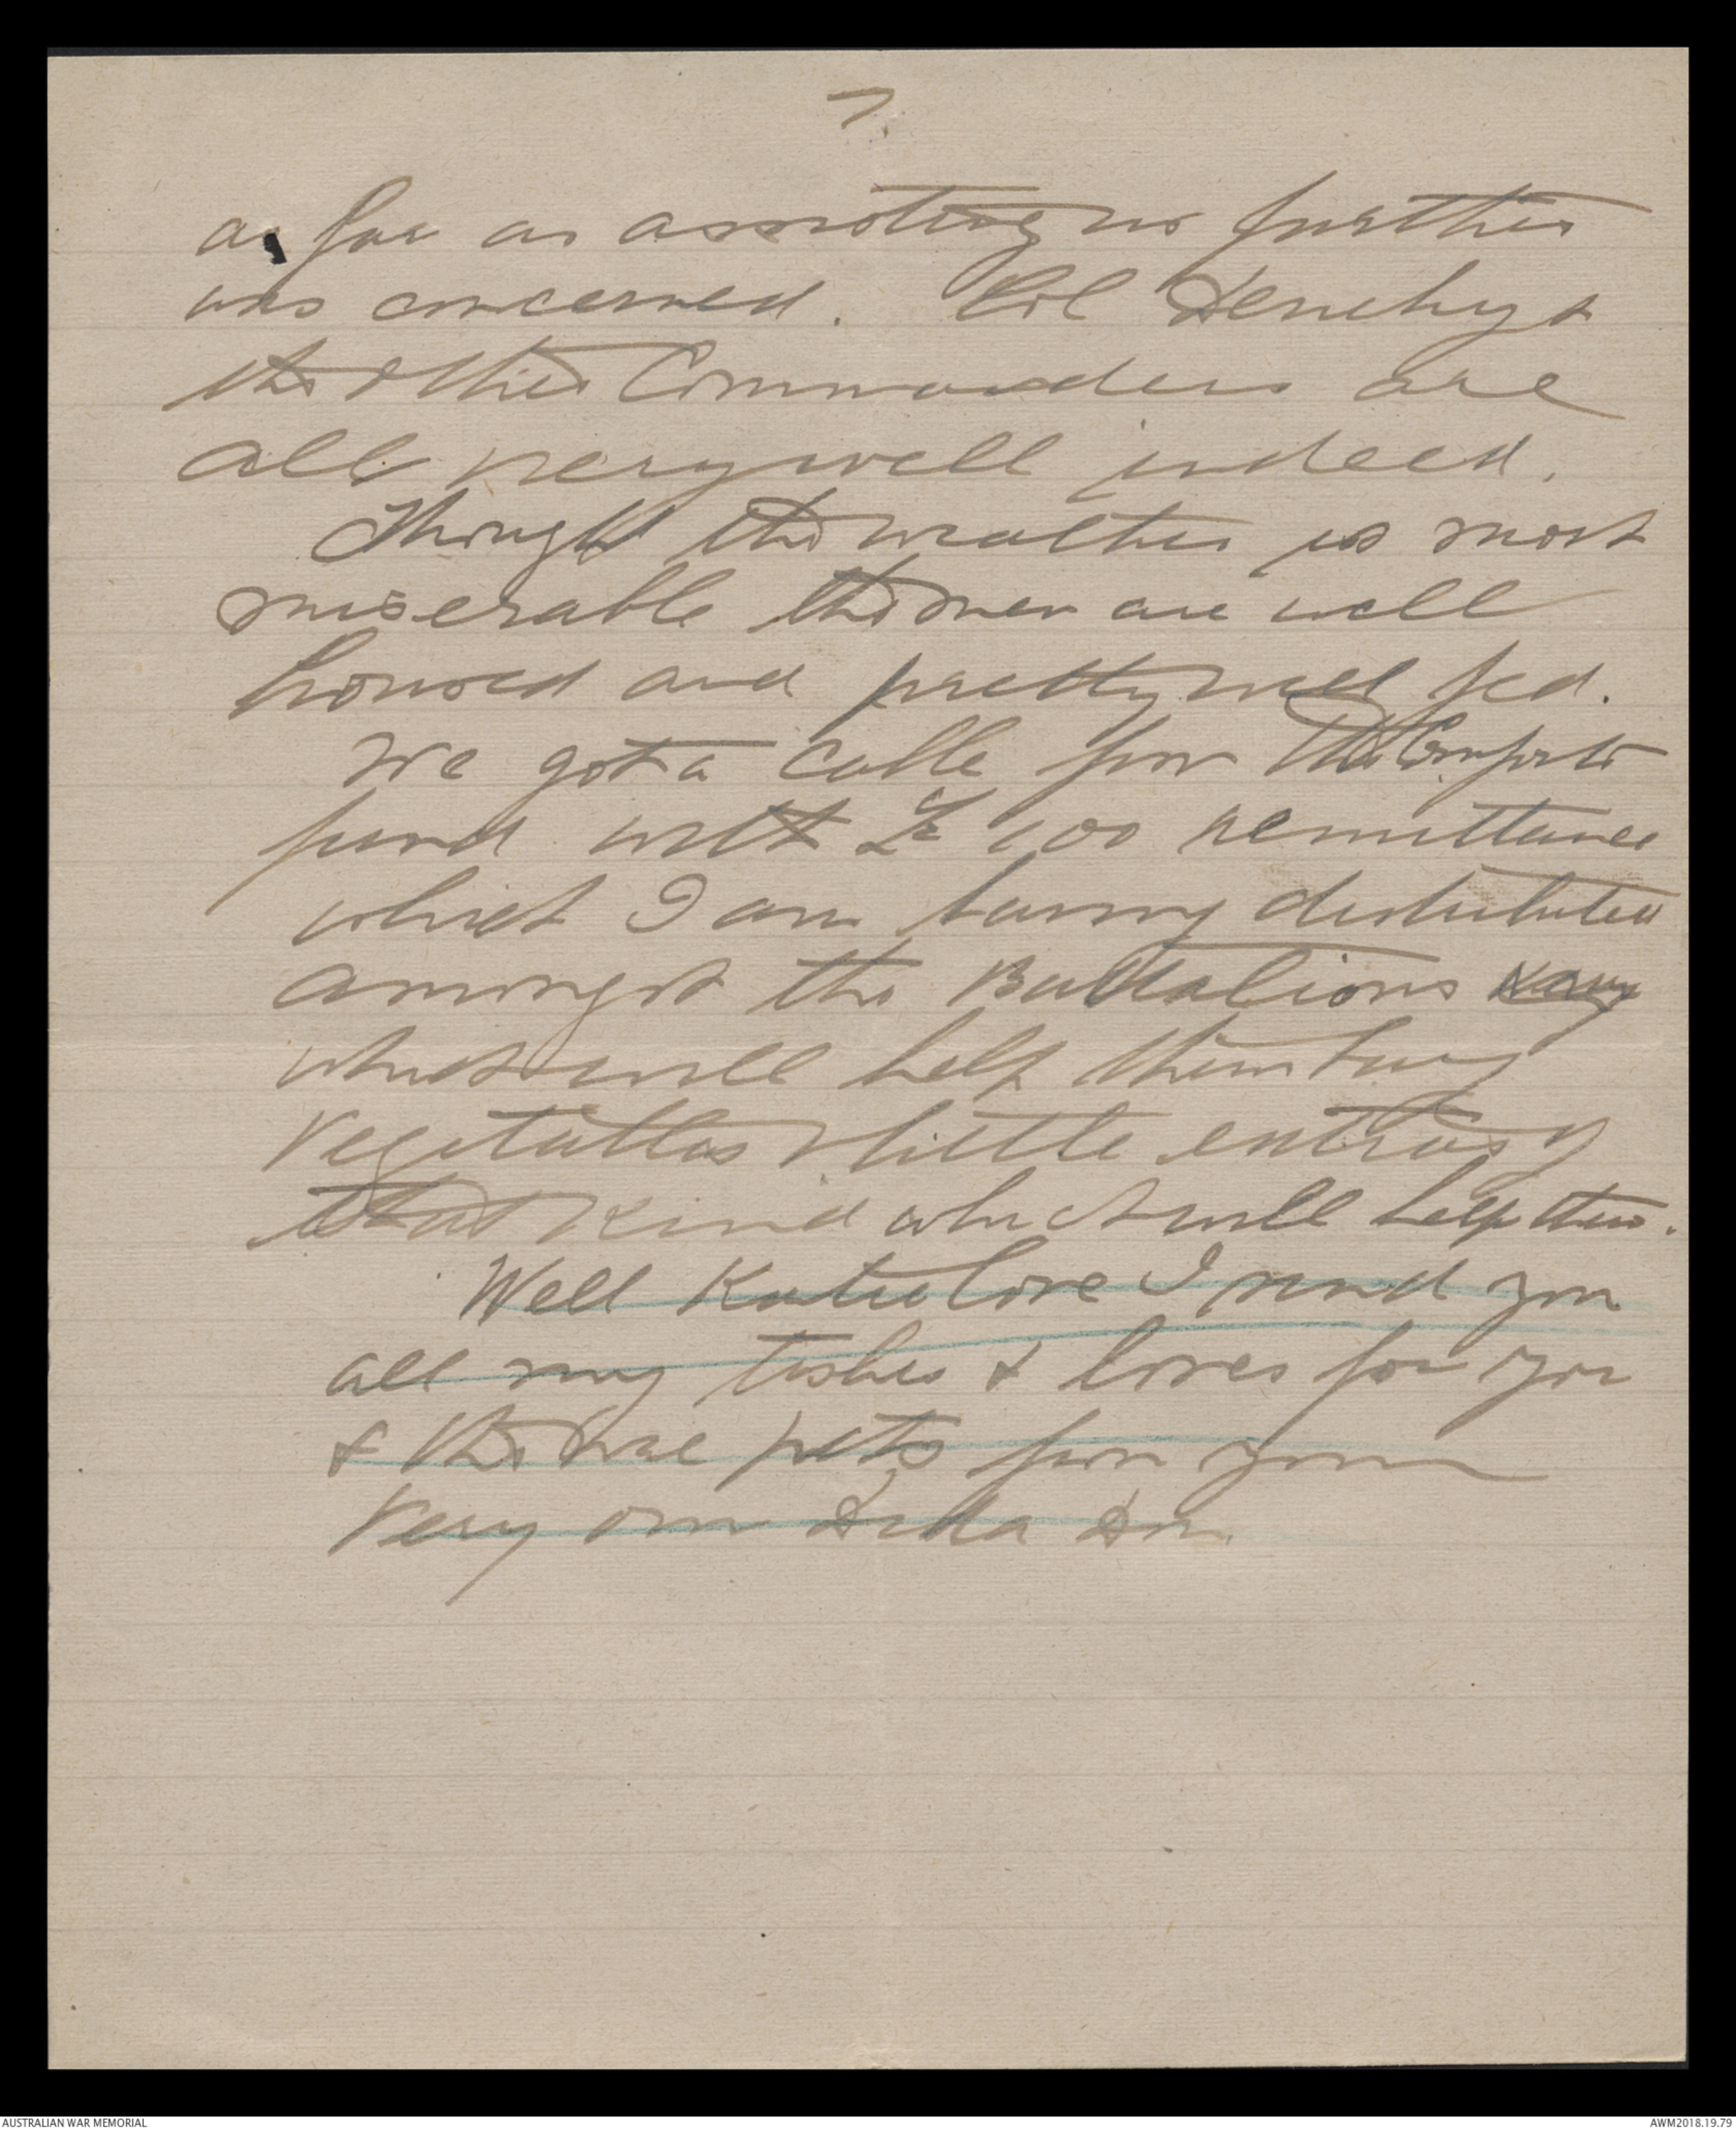 7.
as far as assisting us further
was concerned. Col Denehy &
the other Commanders are
all very well indeed.
Though the weather is most
miserable the men are well
housed and pretty well fed.
We got a cable from the Comforts
fund with £ 100 remittance
which I am having distributed
amongst the Battalions
which will help them buy
vegetables & little extras of
that kind which will help them.
Well Katie love I send you
all my wishes & loves for you
& the wae pets from your
Very own Pompey
AUSTRALIAN WAR MEMORIAL
AWM2018.19.79